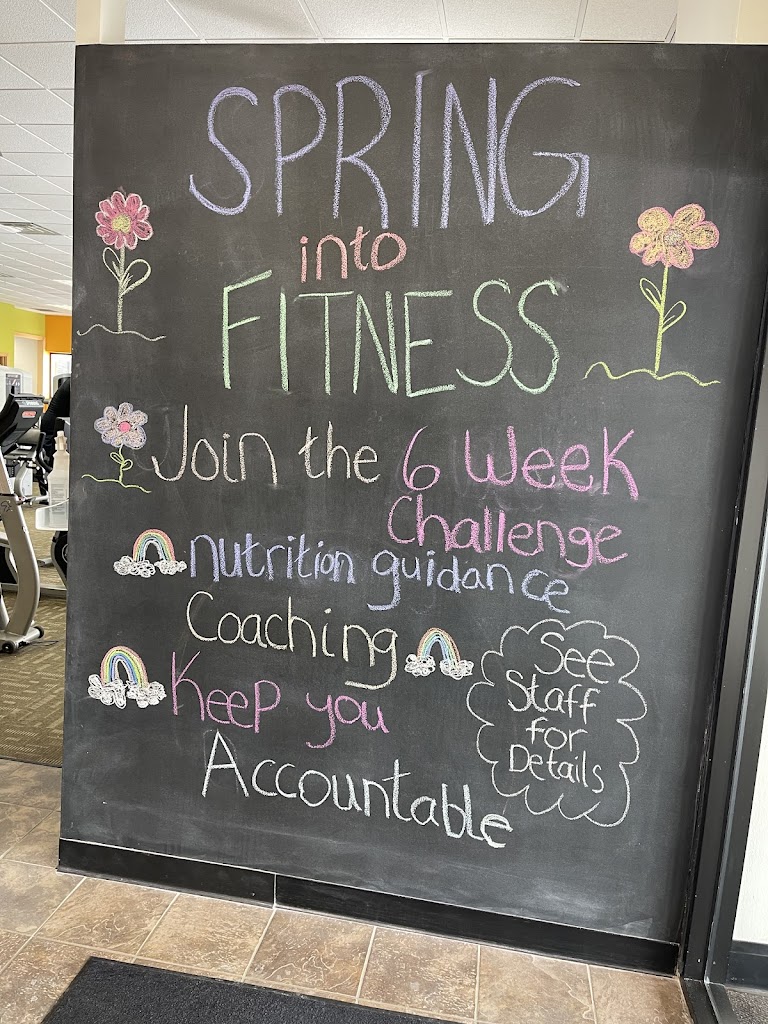 SPRING
into
FITNESS
Join the 6 Week
Challenge
nutrition guidance
Coaching
Keep you
Accountable
See
Staff
for
Details